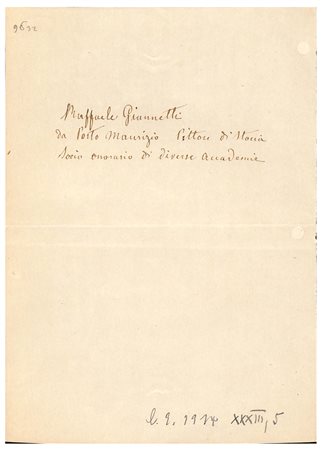 9632
Raffaele Giannetti
da Porto Maurizio Pittore di Storia
Socio onorario di diverse accademie
XXXIII, 5